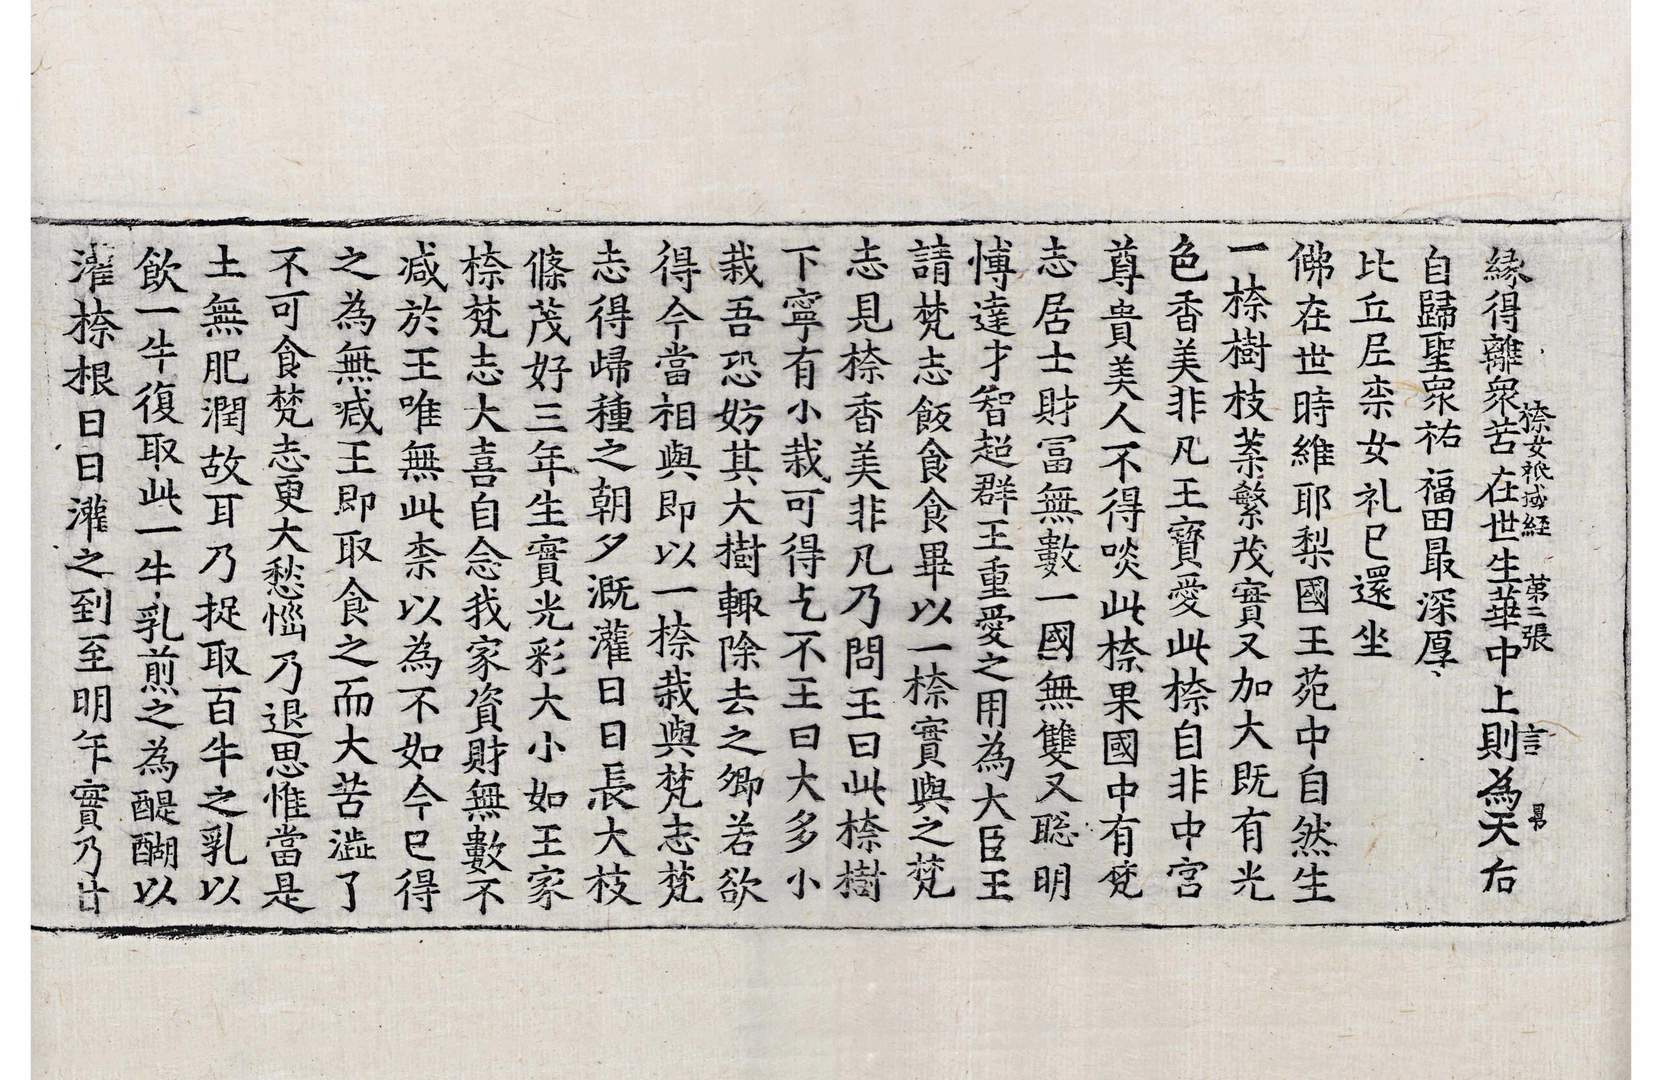 㮈女祇域経 第二張 言 昜
縁得離衆苦在世生華中上則為天右
自歸聖衆祐福田最深厚
比丘尼柰女礼已還坐
佛在世時維耶梨國王苑中自然生
一㮈樹枝葉繁茂實又加大既有光
色香美非凡王寶愛此㮈自非中宮
尊貴美人不得啖此㮈果國中有梵
志居士財冨無數一國無雙又聡明
博達才智超群王重愛之用為大臣王
請梵志飯食食畢以一㮈實與之梵
志見㮈香美非凡乃問王曰此㮈樹
下寧有小栽可得乞不王曰大多小
栽吾恐妨其大樹輙除去之卿若欲
得今當相與即以一㮈栽與梵志梵
志得歸種之朝夕溉灌日日長大枝
條茂好三年生實光彩大小如王家
㮈梵志大喜自念我家資財無數不
减於王唯無此柰以為不如今已得
之為無减王即取食之而大苦澁了
不可食梵志更大愁惱乃退思惟當是
土無肥潤故耳乃捉取百牛之乳以
飲一牛復取此一牛乳煎之為醍醐以
灌㮈根日日灌之到至明年實乃甘